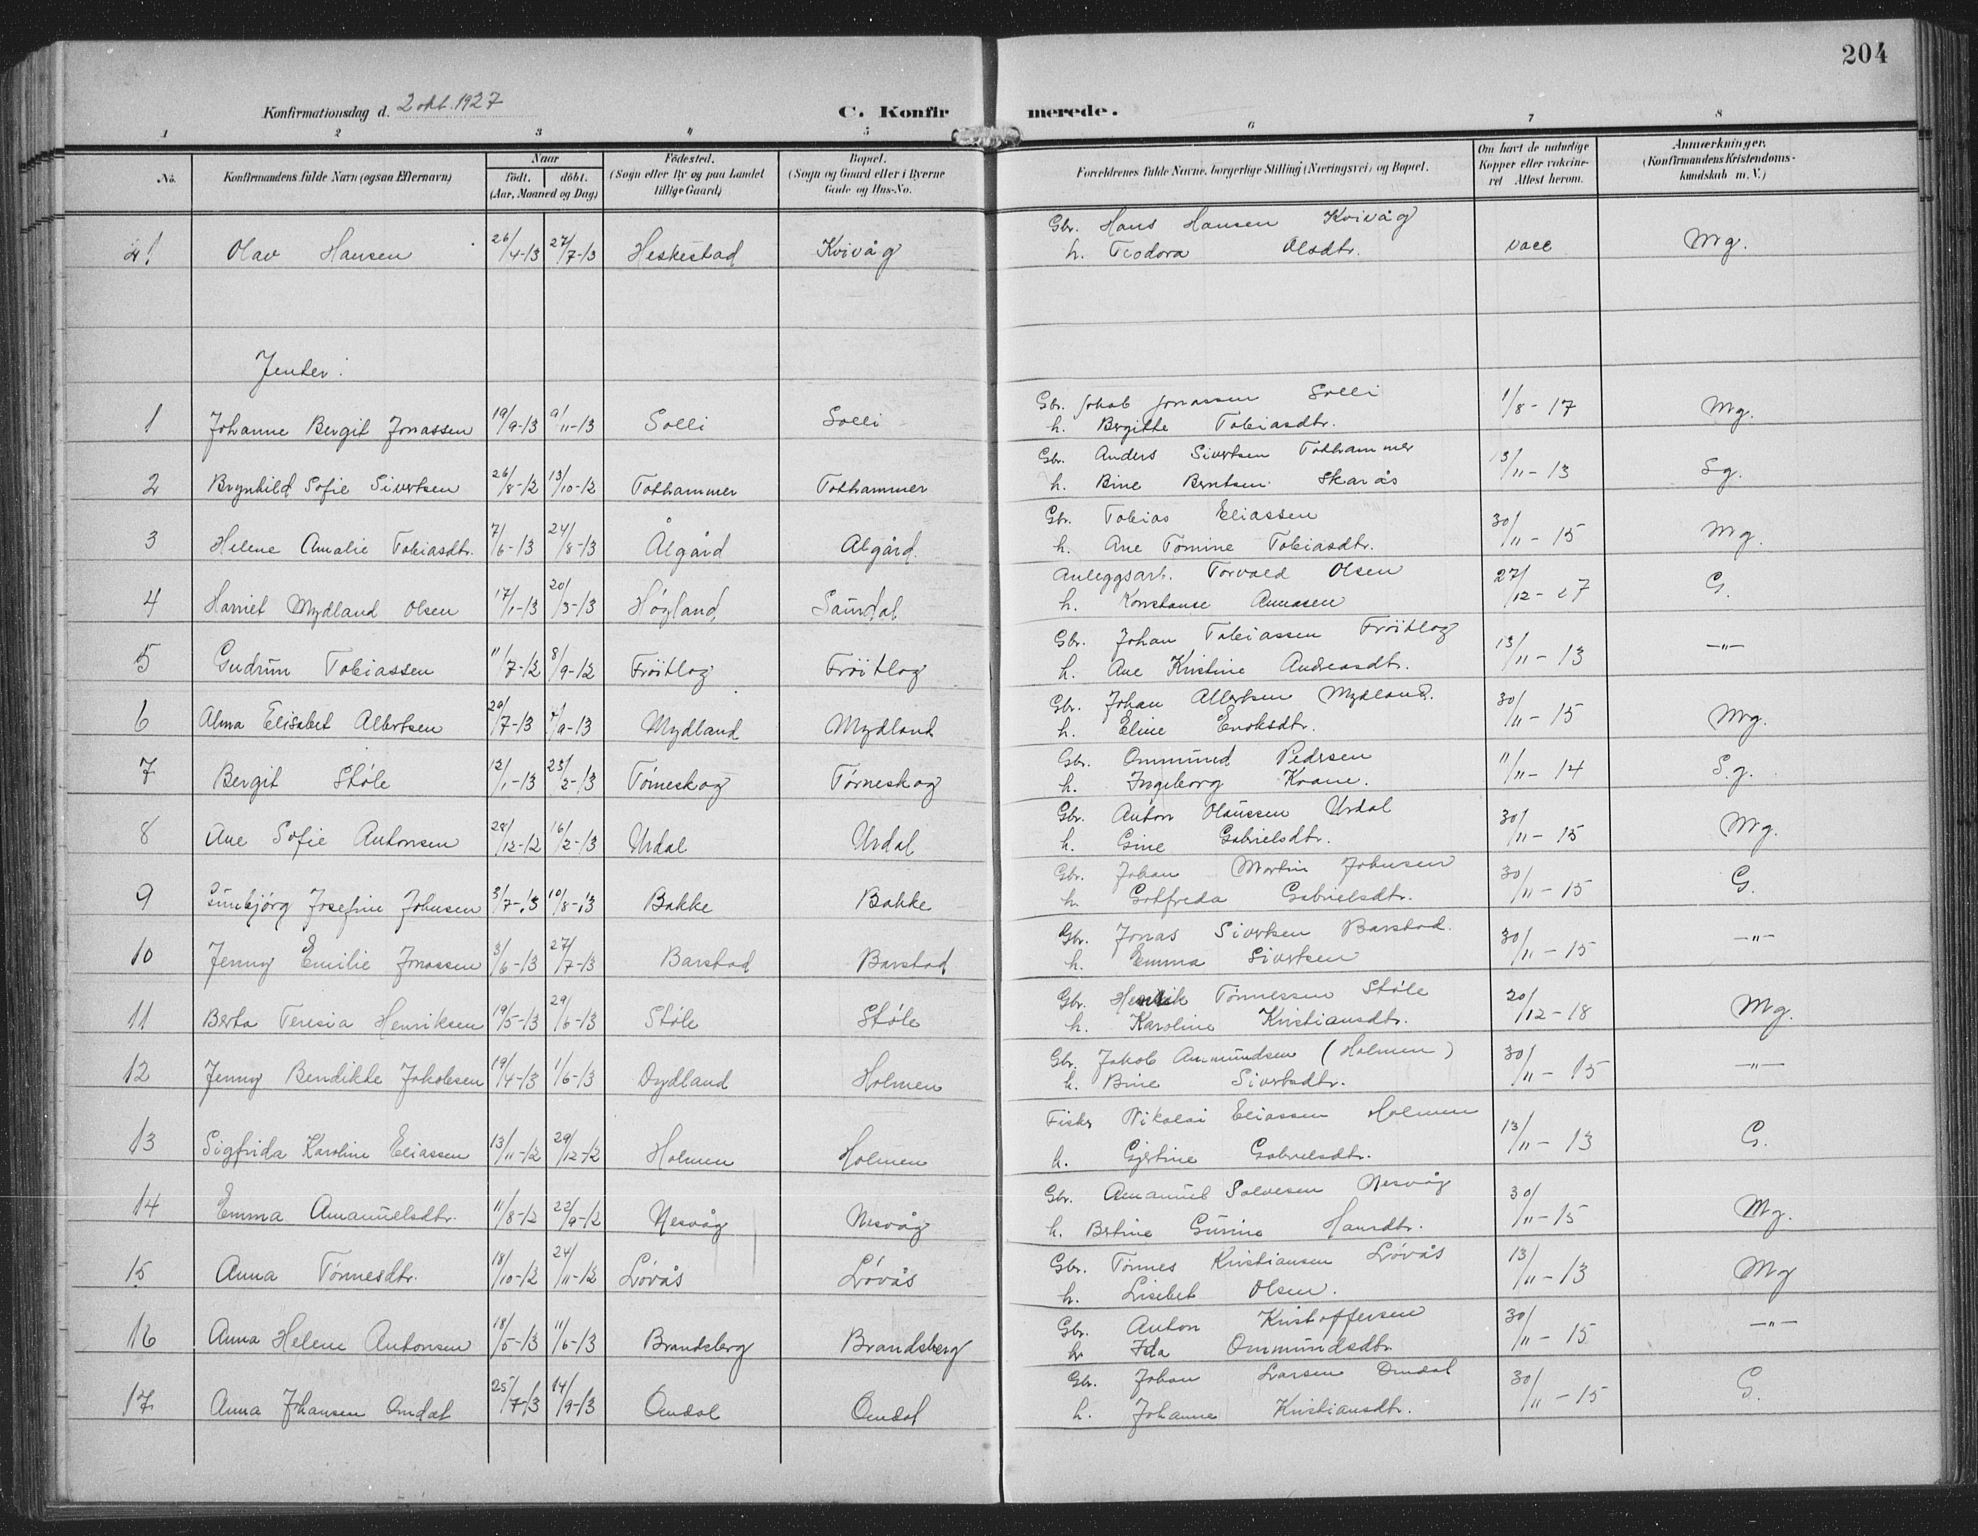 204
Konfirmationsdag d. 2 okt. 1927 C. Konfirmerede.
1 2 3 4 5 6 7 8
No. Konfirmandens fulde Navn (ogsaa Efternavn) Naar født. døbt. (Aar, Maaned og Dag) Fødested. (Sogn eller By og paa Landet tillige Gaard) Bopæl. (Sogn og Gaard eller i Byerne Gade og Hus-No. Forældrenes fulde Navne, borgerlige Stilling (Næringsvei) og Bopæl. Om havt de naturlige Kopper eller vakcineret Attest herom. Anmærkninger. (Konfirmandens Kristendomskundskab m. V.)
Gbr. Hans Hansen Kvivåg
21 Olav Hansen 26/4-13 27/7-13 Heskestad Kvivåg h. Teodora Olsdtr. vacc Mg.
Jenter.
Gbr. Jakob Jonassen Solli
1 Johanne Bergit Jonassen 19/9-13 9/11-13 Solli Solli h. Bergitte Tobiasdtr. 1/8-17 Mg.
Gbr. Anders Sivertsen Tothammer
2 Brynhild Sofie Sivertsen 26/8-12 13/10-12 Tothammer Tothammer h. Bine Berntsen Skarås 13/11-13 Sg.
Gbr. Tobias Eliassen
3 Helene Amalie Tobiasdtr. 7/6-13 24/8-13 Ålgård Algård h. Ane Tomine Tobiasdtr. 30/11-15 Mg.
Anleggsarb. Torvald Olsen
4 Harriet Mydland Olsen 17/1-13 20/3-13 Høgland Saurdal h. Konstanse Aanasen 27/12-27 G.
Gbr. Johan Tobiassen Frøitlog
5 Gudrun Tobiassen 11/7-12 8/9-12 Frøitlog Frøitlog h. Ane Kristine Andreasdtr. 13/11-13 -"-
Gbr. Johan Albertsen Mydland.
6 Alma Elisabet Albertsen 20/7-13 7/9-13 Mydland Mydland h. Eline Enoksdtr. 30/11-15 Mg.
Gbr. Ommund Pedersen
7 Bergit Støle 12/1-13 23/2-13 Tørneskog Tørneskog h. Ingeborg Krane. 11/11-14 S.g.
Gbr. Anton Olaussen Urdal
8 Ane Sofie Antonsen 28/12-12 16/2-13 Urdal Urdal h. Gine Gabrielsdtr. 30/11-15 Mg.
Gbr. Johan Martin Johnsen
9 Gunbjørg Josefine Johnsen 3/7-13 10/8-13 Bakke Bakke h. Gotfreda Gabrielsdtr. 30/11-15 G.
Gbr. Jonas Sivertsen Barstad.
10 Jenny Emilie Jonassen 3/6-13 27/7-13 Barstad Barstad h. Emma Sivertsen 30/11-15 -"-
Gbr. Henrik Tønnessen Støle
11 Berta Teresia Henriksen 19/5-13 29/6-13 Støle Støle h. Karoline Kristiansdtr. 20/12-18 Mg.
Gbr. Jakob Ammundsen (Holmen)
12 Jenny Bendikte Jakobsen 19/4-13 1/6-13 Dydland Holmen h. Bine Sivertsdtr. 30/11-15 -"-
Fisker Nikolai Eliassen Holmen
13 Sigfrida Karoline Eliassen 13/11-12 29/12-12 Holmen Holmen h. Gjertine Gabrielsdtr. 13/11-13 G.
Gbr. Amanuel Salvesen Nesvåg
14 Emma Amanuelsdtr. 11/8-12 22/9-12 Nesvåg Nesvåg h. Bertine Gurine Hansdtr. 30/11-15 Mg.
Gbr. Tønnes Kristiansen Løvås
15 Anna Tønnesdtr. 18/10-12 24/11-12 Løvås Løvås h. Lisebet Olsen. 13/11-13 Mg
Gbr. Anton Kristoffersen
16 Anna Helene Antonsen 18/5-13 11/6-13 Brandsberg Brandsberg h. Ida Ommundsdtr. 30/11-15 -"-
Gbr. Johan Larsen Omdal
17 Anna Johansen Omdal 25/7-13 14/9-13 Omdal Omdal h. Johanne Kristiansdtr. 30/11-15 G.